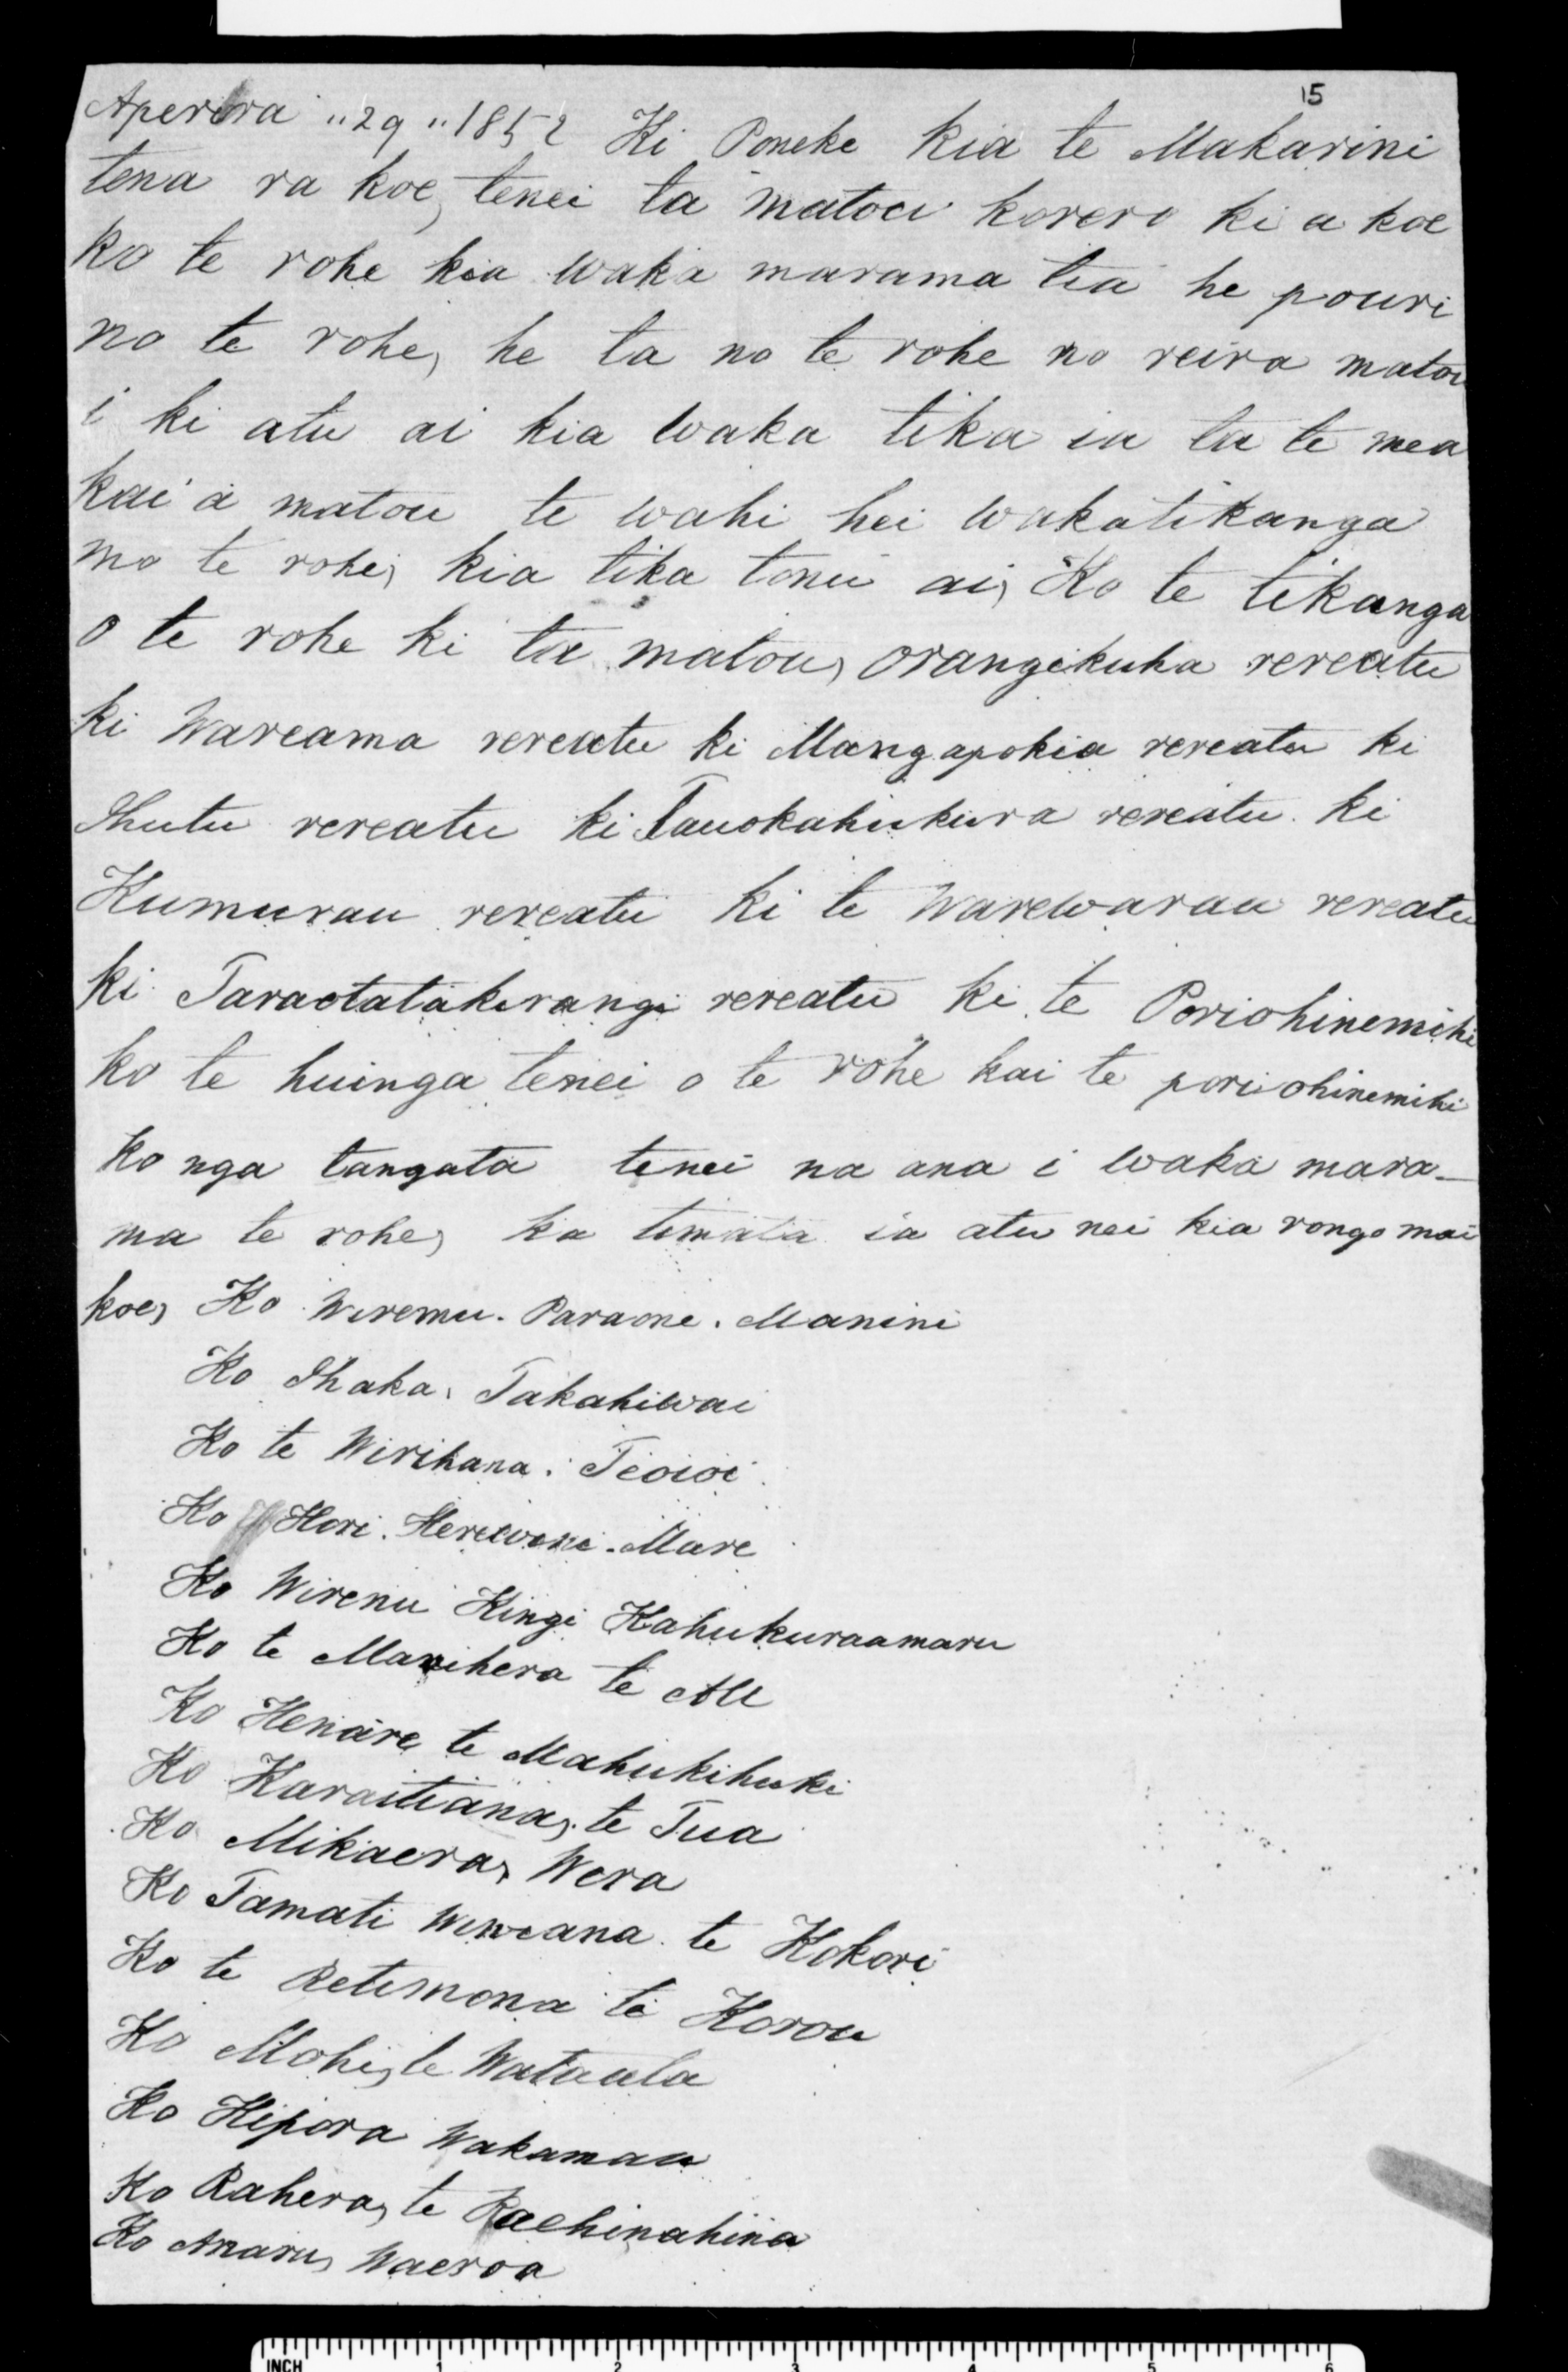 15
Aperira "29" 1852 Ki Poneke kia te Makarini
tena ra koe, tenei ta matou korero ki a koe
ko te rohe kia waka marama tia he pouri
no te rohe, he ta no te rohe no reira matou
i ki atu ai kia waka tika ia ta te mea
kai a matou te wahi hei wakatikanga
mo te rohe, kia tika tonu ai, Ko te tikanga
o te rohe ki ta matou, orangikuha rereatu
ki Wareama rereatu ki Mangapokia rereatu ki
Ihutu rereatu ki Tauokahukura rereatu ki
Kumurau rereatu ki te Warewarau rereatu
ki Taraotatakirangi rereatu ki te Poriohinemihi
ko te huinga tenei o te rohe kai te poriohinemihi
ko nga tangata tenei na ana i waka mara-
ma te rohe, ka timata ia atu nei kia rongo mai
koe, Ko Wiremu. Paraone. Manini
Ko Ihaka, Takahiwai
Ko te Wirihana. Teoioi
Ko Hori. Herewini. Mare
Ko Wiremu Kingi Kahukuraamaru
Ko te Manihera te
Ko Henare te Mahukihuki
Ko Karaitiana, te Tua
Ko Mikaera, Wera
Ko Tamati te Kokori
Ko te Retimona te Korou
Ko Mohi, te Wataula
Ko Hipora Wakamau
Ko Rahera, te Raehinahina
Ko Anaru, Waeroa
INCH 1 2 3 4 5 6